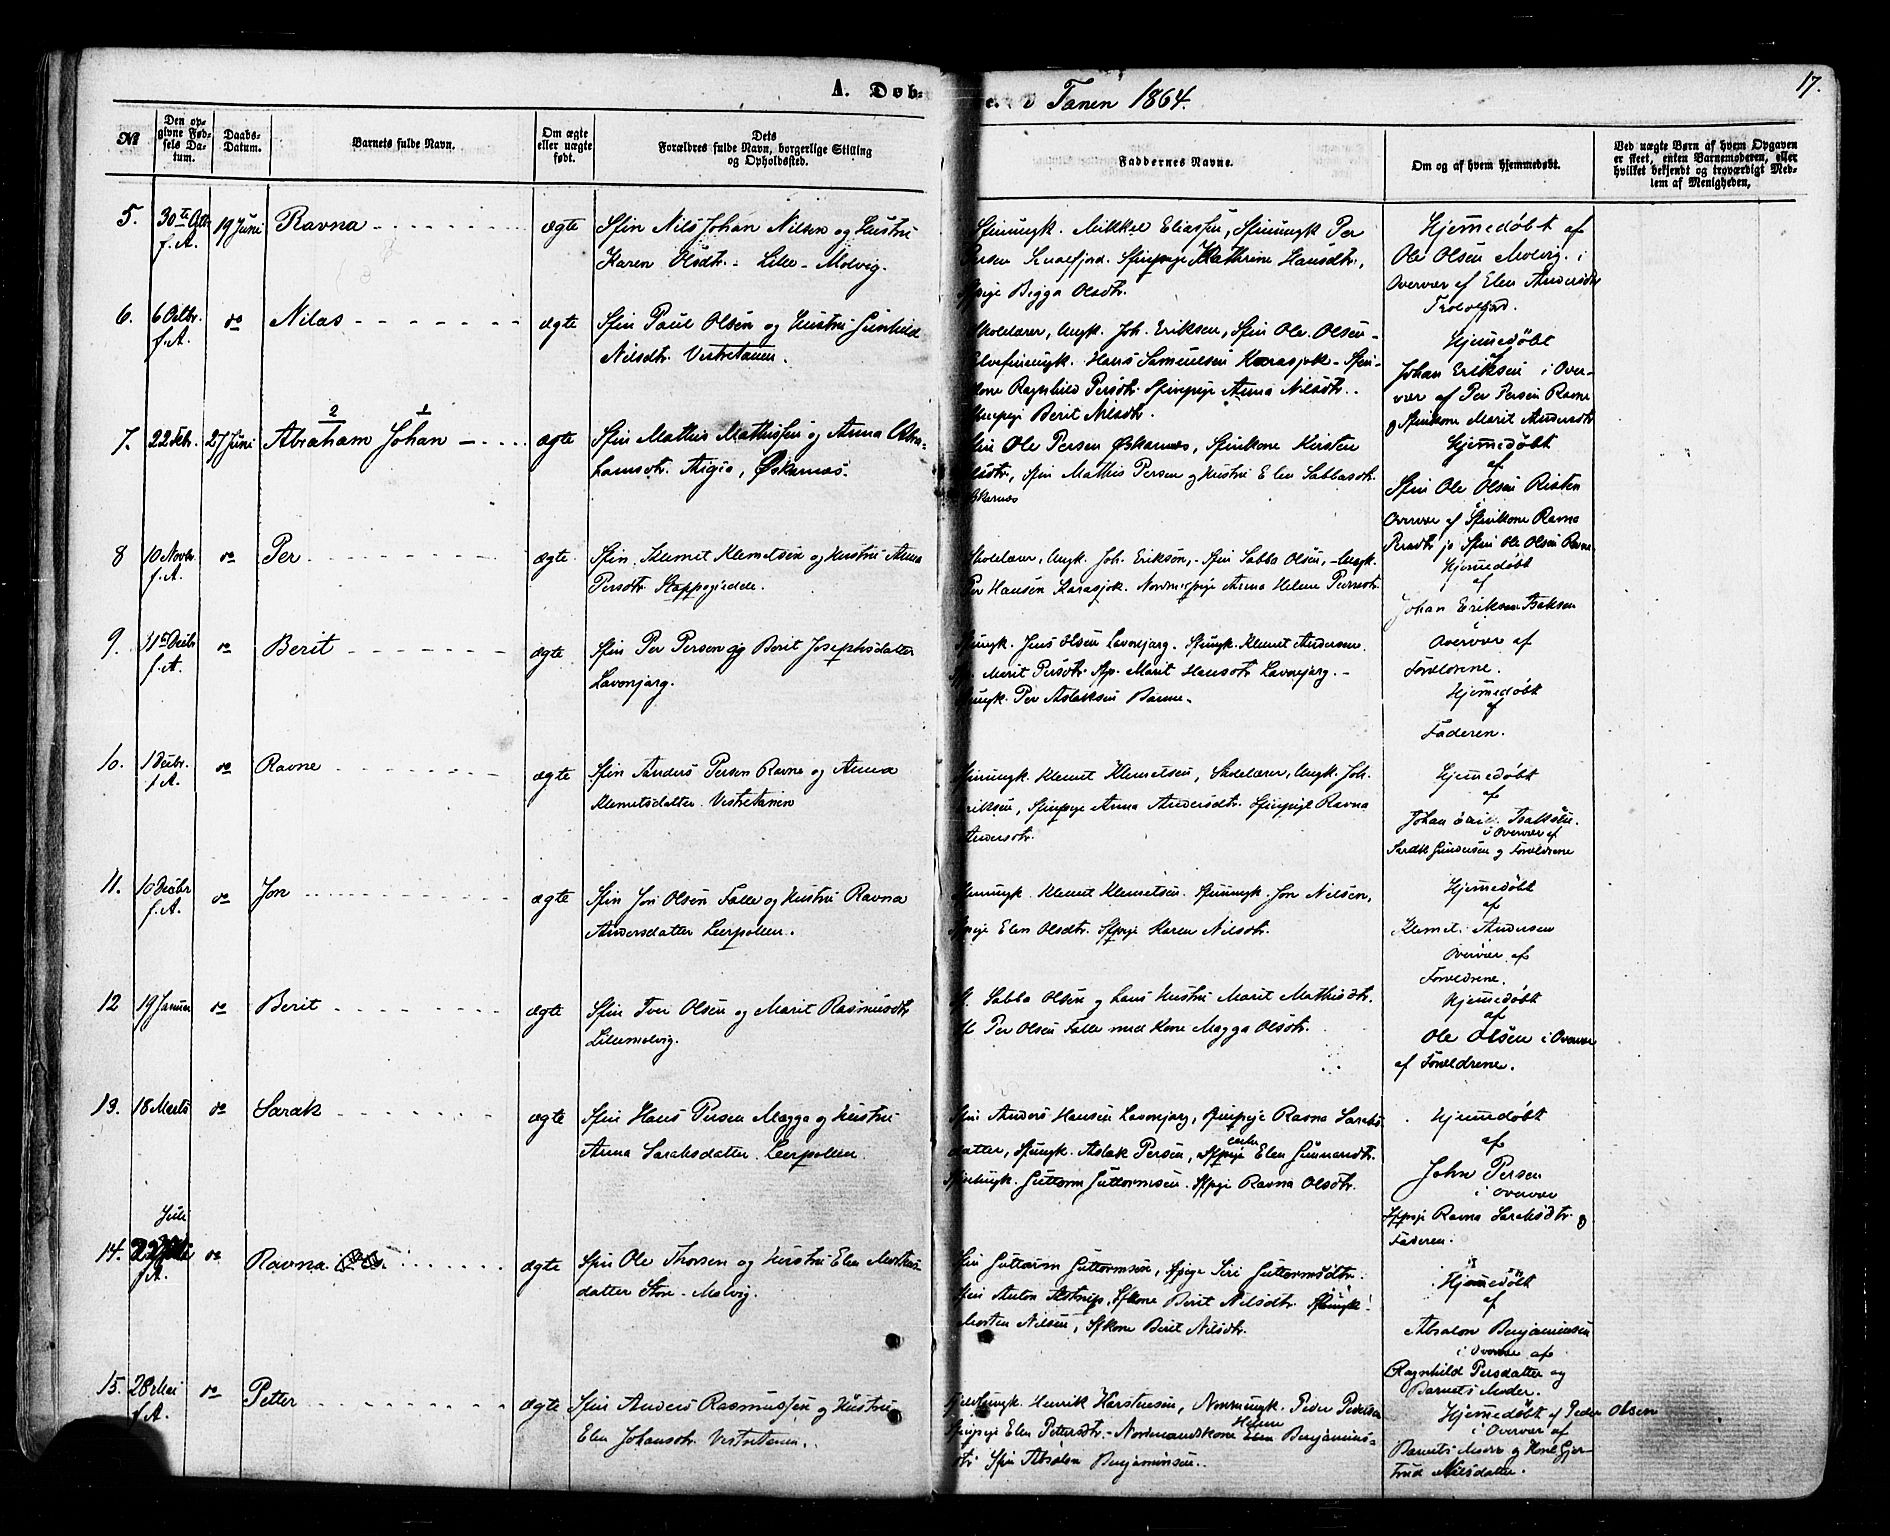 A. Døb-
i Tanen 1864.
17.
No
Den op-
givne Fød-
sels Da-
tum.
Daabs-
Datum.
Barnets fulde Navn.
Om ægte
eller uægte
født.
Dets
Forældres fulde Navn, borgerlige Stilling
og Opholdssted.
Faddernes Navne.
Om og af hvem hjemmedøbt.
Ved uægte Børn af hvem Opgaven
er skeet, enten Barnemoderen, eller
hvilket bekjendt og troværdigt Med-
lem af Menigheden.
5.
f. A.
19 Juni
Ravna
ægte
Sfin Nils Johan Nilsen og Hustru
Karen Olsdtr. Lille-Molvig.
Mikkel Eliassen, Per
Persen Kathrine Hansdtr.,
Bigga Olsdtr.
Hjemedøbt af
Ole Olsen Molvig. i
Overvær af Elen Andersdtr
6.
6 Octbr.
f. A.
do
Nilas
ægte
Sfin Paul Olsen og Hustru Gunhild
Nilsdtr. Vestretanen.
Skolelærer, Ungk. Joh. Eriksen, Sfin Ole Olsen
Hans Samuelsen Karasjok - Sfin-
kone Ragnhild Persdtr. Sfinpige Anna Nilsdtr.
Berit Nilsdtr.
Hjemedøbt
Johan Eriksen i Over-
vær af Per Persen Ravne
og Sfinkone Marit Andersdtr
7.
22 Febr.
27 Juni
2 1
Abraham Johan
ægte
Sfin Mathis Mathissen og Anna Abra-
hamsdtr. Aigio, Øskernæs.
Sfin Ole Persen Øskernæs, Sfinkone Kirsten
Sfin Mathis Persen og Hustru Elen Sabbasdtr.
Hjemedøbt
af
Sfin Ole Olsen Risten
Overvær af Sfinkone Ravna
Persdtr Sfin Ole Olsen Ravne
8
10 Novbr.
f. A.
do
Per
ægte
Sfin Klemet Klemetsen og Hustru Anna
Persdtr. Stappogiedde.
Skolelærer, Ungk. Joh. Eriksen, - Sfin Sabba Olsen, - Ungk.
Per Hansen Karasjok. Anna Helene
Hjemedøbt
af
Johan Eriksen Isaksen
Overvær af
Forældrene.
9.
f. A.
do
Berit
ægte
Sfin Per Persen og Berit Josephsdatter
Lavonjarg.
Jens Olsen Lavonjarg. Sfungk. Klemet Andersen
Marit Persdtr. Marit Hansdtr Lavonjarg. -
Per Aslaksen Banne.
Hjemedøbt
af
Faderen.
10.
1 Decbr.
f. A.
do
Ravne
ægte
Sfin Anders Persen Ravna og Anna
Klemetsdatter. Vestretanen
Klemet Klemetsen, Skolelærer, Ungk. Joh.
Eriksen, Sfinpige Anna Andersdtr. Sfinpige Ravna
Andersdtr.
Hjemedøbt
af
Johan Isaksen.
i Overvær af
Gundersen og Forældrene
11.
10 Decbr
f. A.
do
Jon
ægte
Sfin Jon Olsen Falle og Hustru Ravna
Andersdatter Leerpollen.
Klemet Klemetsen. Jon Nilsen,
Elen Olsdtr. Karen Nilsdtr.
Hjemedøbt
af
Klemet Andersen
Overvær af
Forældrene.
12
19 Januar
do
Berit
ægte
Sfin Iver Olsen og Marit Rasmusdtr
Lillemolvig.
Sabba Olsen og hans Hustru Marit Mathisdtr.
Per Olsen Falle med Kone Magga Olsdtr.
Hjemedøbt
af
Ole Olsen i Overvær
af Forældrene.
13.
18 Marts
do
Sarak
ægte
Sfin Hans Persen Magga og Hustru
Anna Saraksdatter. Leerpollen.
Sfin Anders Hansen Lavonjarg, Sfinpige Ravna Saraks-
datter, Sfungk. Aslak Persen, Elen Gunnarsdtr.
Guttorm Guttormsen. Ravna Olsdtr.
Hjemedøbt
af
John Persen
i Overvær
Ravna Saraksdtr. og
Faderen.
14.
Juli
f. A.
do
Ravna
ægte
Sfin Ole Thorsen og Hustru Elen Mortens-
datter Store-Molvig.
Sfin Guttorm Guttormsen, Siri Guttormsdtr.
Sfin Anton Astrup, Sfkone Berit Nilsdtr.
Morten Nilsen, Sfkone Berit Nilsdtr.
Hjemedøbt
af
Absalon Benjaminsen
i Overvær af
Ragnhild Persdatter og
Barnets Moder.
15.
28 Mai
f. A.
do
Petter
ægte
Sfin Anders Rasmussen og Hustru
Elen Johansdtr. Vestretanen.
Henrik Karstensen, Peder Pedersen
Sfinpige Elen Pettersdtr. - Normandskone Helene Benjamins-
dtr Sfin Absalon Benjaminsen.
Hjemedøbt af Peder Olsen
i Overvær af
Barnets Moder og Kone Gjer-
trud Nilsdatter.